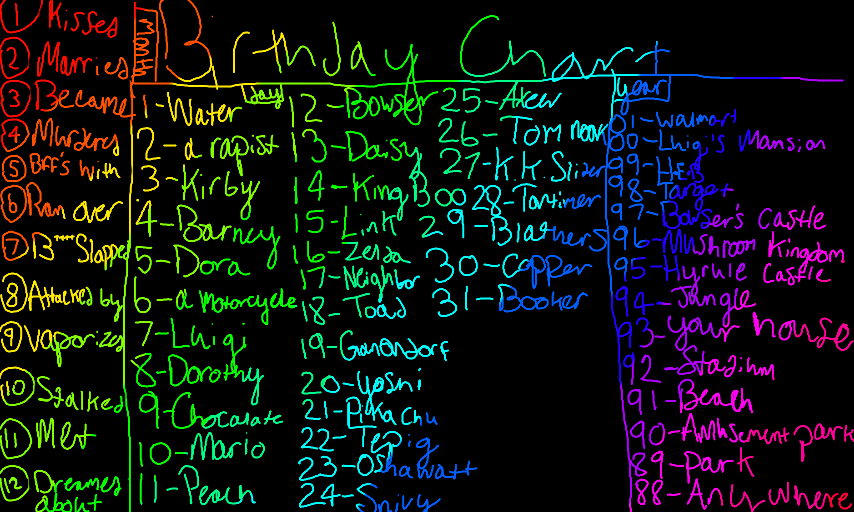 Birthday Chart
Month
1 Kisses
2 Married
3 Became
4 Murdered
5 BFF's with
6 Ran over
7 B**** Slapped
8 Attacked by
9 Vaporized
10 Stalked
11 Met
12 Dreamed about
day
1-Water
2-a rapist
3-Kirby
4-Barney
5-Dora
6-a motorcycle
7-Luigi
8-Dorothy
9-Chocalate
10-Mario
11-Peach
12-Bowser
13-Daisy
14-King Boo
15-Link
16-Zelda
17-Neighbor
18-Toad
19-Ganondorf
20-Yoshi
21-Pikachu
22-Tepig
23-Oshawatt
24-Snivy
25-
26-Tom nook
27-K.K. Slider
28-Tortimer
29-Blathers
30-Copper
31-Booker
year
01-Walmart
00-Luigi's Mansion
99-H.E.B
98-Target
97-Bowser's Castle
96-Mushroom Kingdom
95-Hyrule Castle
94-Jungle
93-your house
92-Stadium
91-Beach
90-Amusement park
89-Park
88-Anywhere